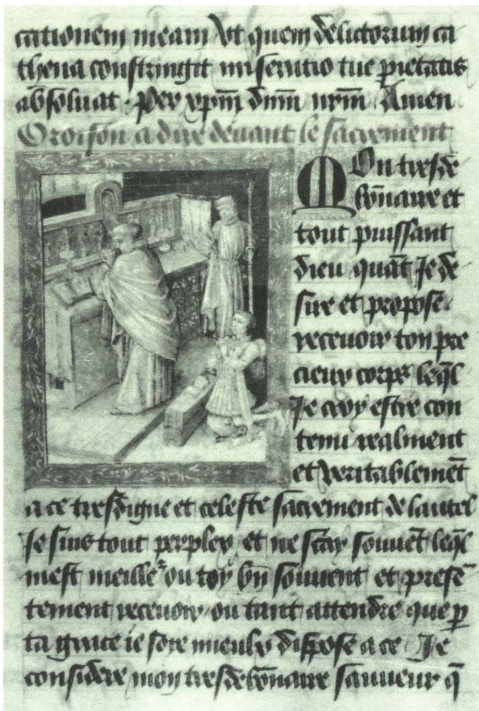 cationem meam Ut quem delictorum ca
thena constringit miseratio tue pietatis
absoluat. Per xpm dnm nrm Amen
Oroison a dire deuant le sacrement
Mon tresde
bonnaire et
tout puissant
dieu quāt Je de
sire et propose
receuoir ton pre
cieux corps leql̄
Je croy estre con
tenu realment
et veritablemēt
a ce tresdigne et celeste sacrement de lautel
Je suis tout perplex et ne scay souuēt leql̄
mest meille᷑ ou toy bn̄ souuent et presē
tement receuoir ou tant attendre que p
ta grace ie soye mieulx dispose a ce Je
considere mon tresdebonnaire sauueur q̄